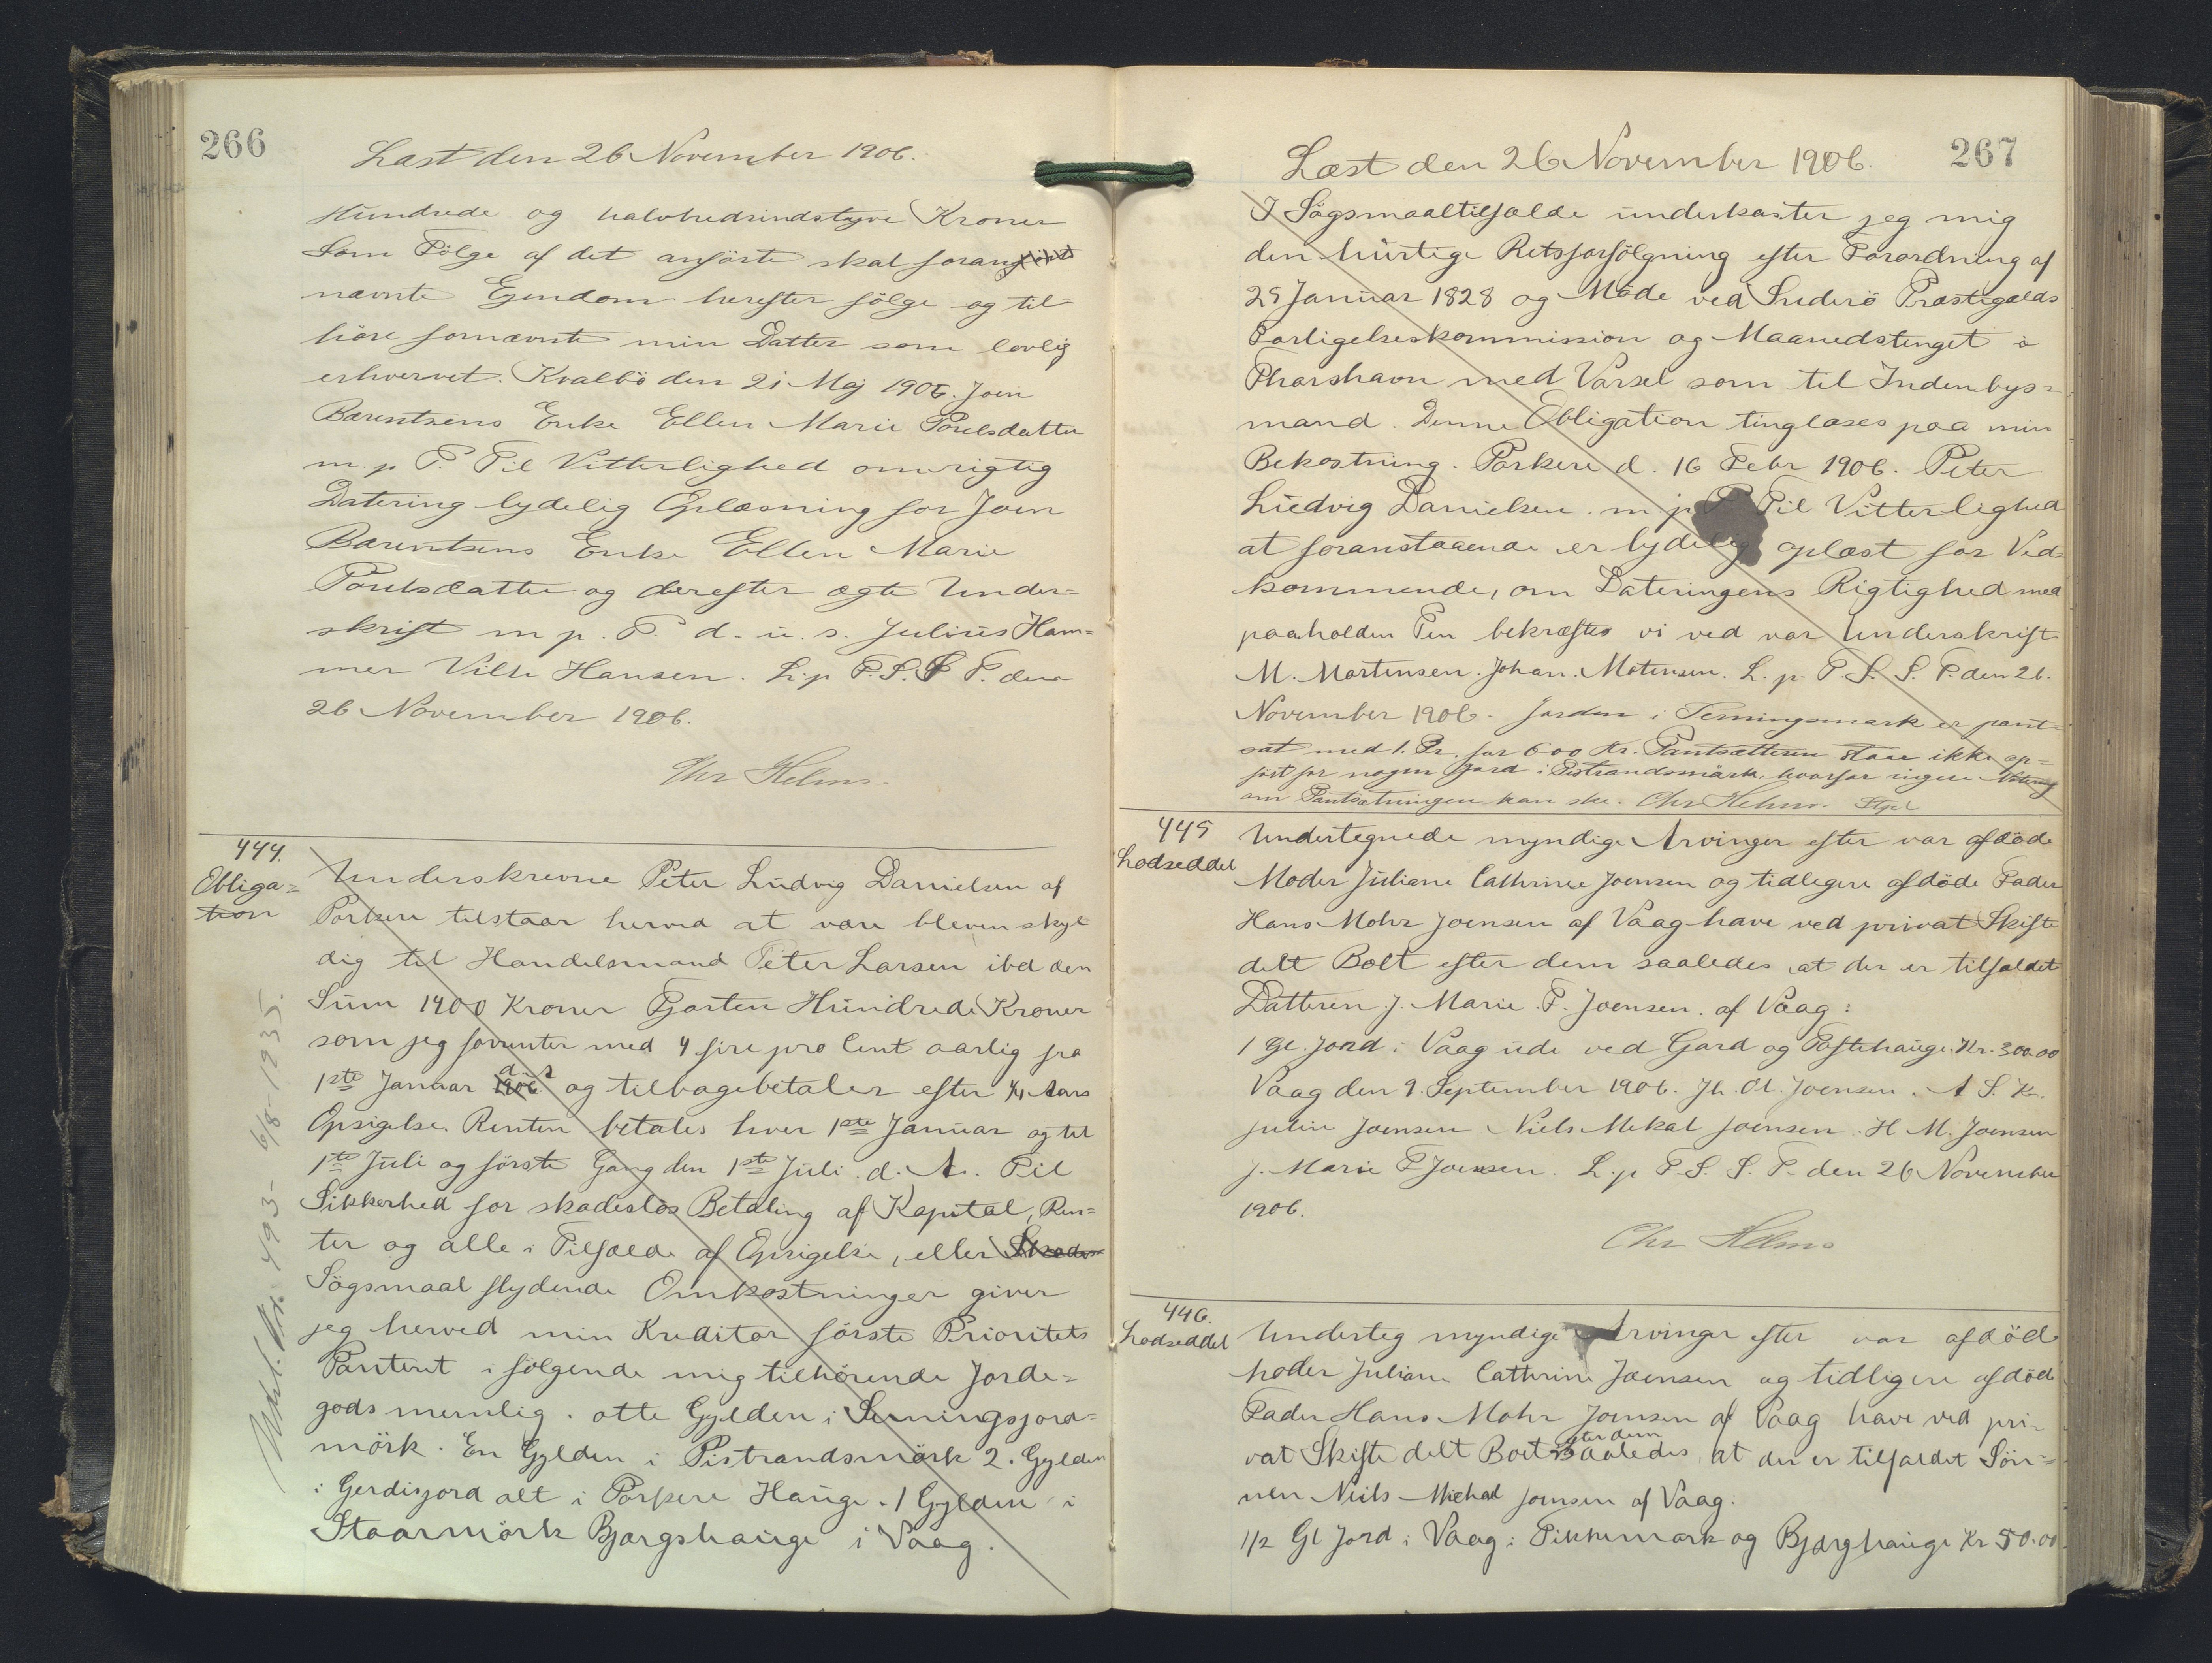 266
Læst den 26 November 1906.
Hundrede og halvhedsindstyve Kroner
Som Fölge af det anförte skal foran
nævnte Ejendom herefter fölge og til-
höre fornævnte min Datter som lovlig
erhvervet. Kvalbö den 21 Maj 1906. Joen
Barentsens Enke Ellen Marie Poulsdatter
m. p. P. Til Vitterlighed om rigtig
Datering lydelig Oplæsning for Joen
Barentsens Enke Ellen Marie
Poulsdatter og derefter ægte Under-
skrift m p. P. d. u. s. Julius Ham-
mer Vilh Hansen. L. p P. S. S P. den
26 November 1906.
Chr Helms.
444.
Obliga=
tion
Underskrevne Peter Ludvig Danielsen af
Porkere tilstaar herved at være bleven skyl
dig til Handelsmand Peter Larsen ibd den
Sum 1400 Kroner Fjorten Hundrede Kroner
som jeg forrenter med 4 fire pro Cent aarlig fra
1ste Januar d. A og tilbagebetaler efter 1/4 Aars
Opsigelse. Renten betales hver 1ste Januar og til
1ste Juli og förste Gang den 1ste Juli d. A. Til
Sikkerhed for skadeslös Betaling af Kapital, Ren=
ter og alle i Tilfælde af Opsigelse, eller
Sögsmaal flydende Omkostninger giver
jeg herved min Kreditor förste Prioritets
Panteret i fölgende mig tilhörende Jorde=
gods nemlig. otte Gylden i Semingsjord=
mörk. En Gylden i Pistrandsmörk 2. Gylden
i Gerdisjord alt i Porkere Hauge. 1 Gylden i
Staarmörk Bjargshauge i Vaag.
Udsl. Nr. 493- 6/8-1935.
Læst den 26 November 1906.
267
I Sögsmaaltilfælde underkaster jeg mig
den hurtige Retsforfölgning efter Forordning af
25 Januar 1828 og Möde ved Suderö Præstegælds
Forligelseskommission og Maanedstinget i
Thorshavn med Varsel som til Indenbys=
mand. Denne Obligation tinglæses paa min
Bekostning. Porkere d. 16 Febr 1906. Peter
Ludvig Danielsen. m. p. P Til Vitterlighed
at foranstaaende er lydelig oplæst for Ved=
kommende, om Dateringens Rigtighed med
paaholden Pen bekræftes vi ved vor Underskrift
M. Mortensen. Johan. Motensen. L. p. P. S. S. P. den 26.
November 1906. Jorden i Semingsmark er pant=
sat med 1. Pr. for 600 Kr. Pantsætteren staar ikke op=
fört for nogen Jord i Pistrandsmark, hvorfor ingen
om Pantsætningen kan ske. Chr Helms. Stpl
445
Lodseddel
Undertegnede myndige Arvinger efter vor afdöde
Moder Juliane Cathrine Joensen og tidligere afdöde Fader
Hans Mohr Joensen af Vaag have ved privat Skifte
delt Boet efter dem saaledes at der er tilfaldet
Datteren J. Marie. F. Joensen. af Vaag:
1 gl. Jord i Vaag ude ved Gard og Toftehauge. Kr. 300.00
Vaag den 9. September 1906. Jh. Ol. Joensen. A S. Kr.
Juline Joensen Niels Mikal Joensen. H. M. Joensen
J. Marie F Joensen. L. p P. S. S. P. den 26 November
1906.
Chr Helms
446.
Lodseddel
Underteg myndige Arvinger efter vor afdöd
Moder Juliane Cathrine Joensen og tidligere afdöd
Fader Hans Mohr Joensen af Vaag have ved pri-
vat Skifte delt Boet efter dem saaledes, at der er tilfaldet Sön=
nen Niels Michal Joensen af Vaag:
1/2 Gl Jord i Vaag i Tikkemark og Bjarghauge Kr 50.00